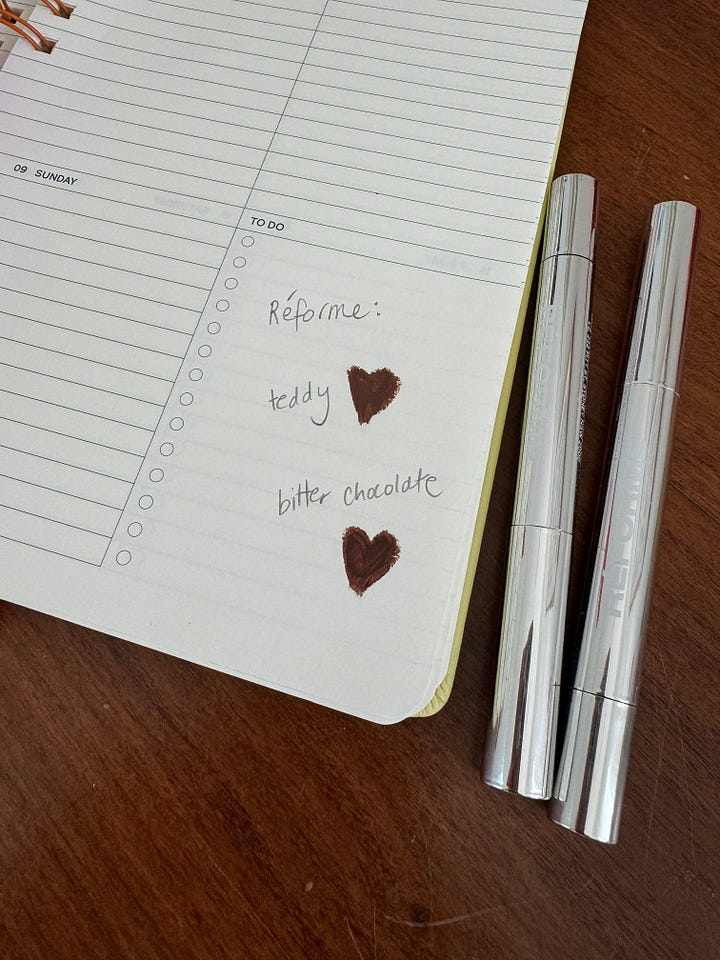 09 SUNDAY
TO DO
Réforme:
teddy
bitter chocolate